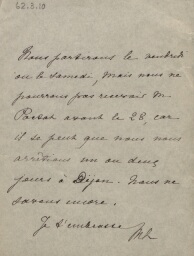 62.8.10
Nous partirons le vendredi
ou le samedi, mais nous ne
pourrons pas recevoir M
avant le 28, car
il se peut que nous nous
arrêtions un ou deux
jours à Dijon. Nous ne
savons encore.
Je t'embrasse